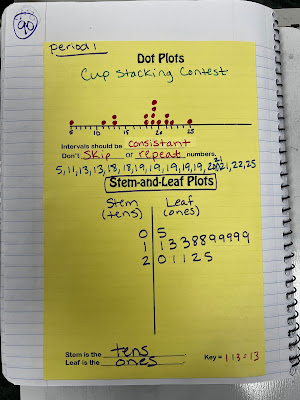 90
period 1
Dot Plots
Cup Stacking Contest
5 10 15 20 25
Intervals should be consistant
Don't skip or repeat numbers.
5, 11, 13, 13, 18, 18, 19, 19, 19, 19, 19, 20, 21, 21, 22, 25
Stem-and-Leaf Plots
Stem Leaf
(tens) (ones)
0 5
1 1 3 3 8 8 9 9 9 9 9
2 0 1 1 2 5
Stem is the tens
Leaf is the ones Key = 1|3 = 13